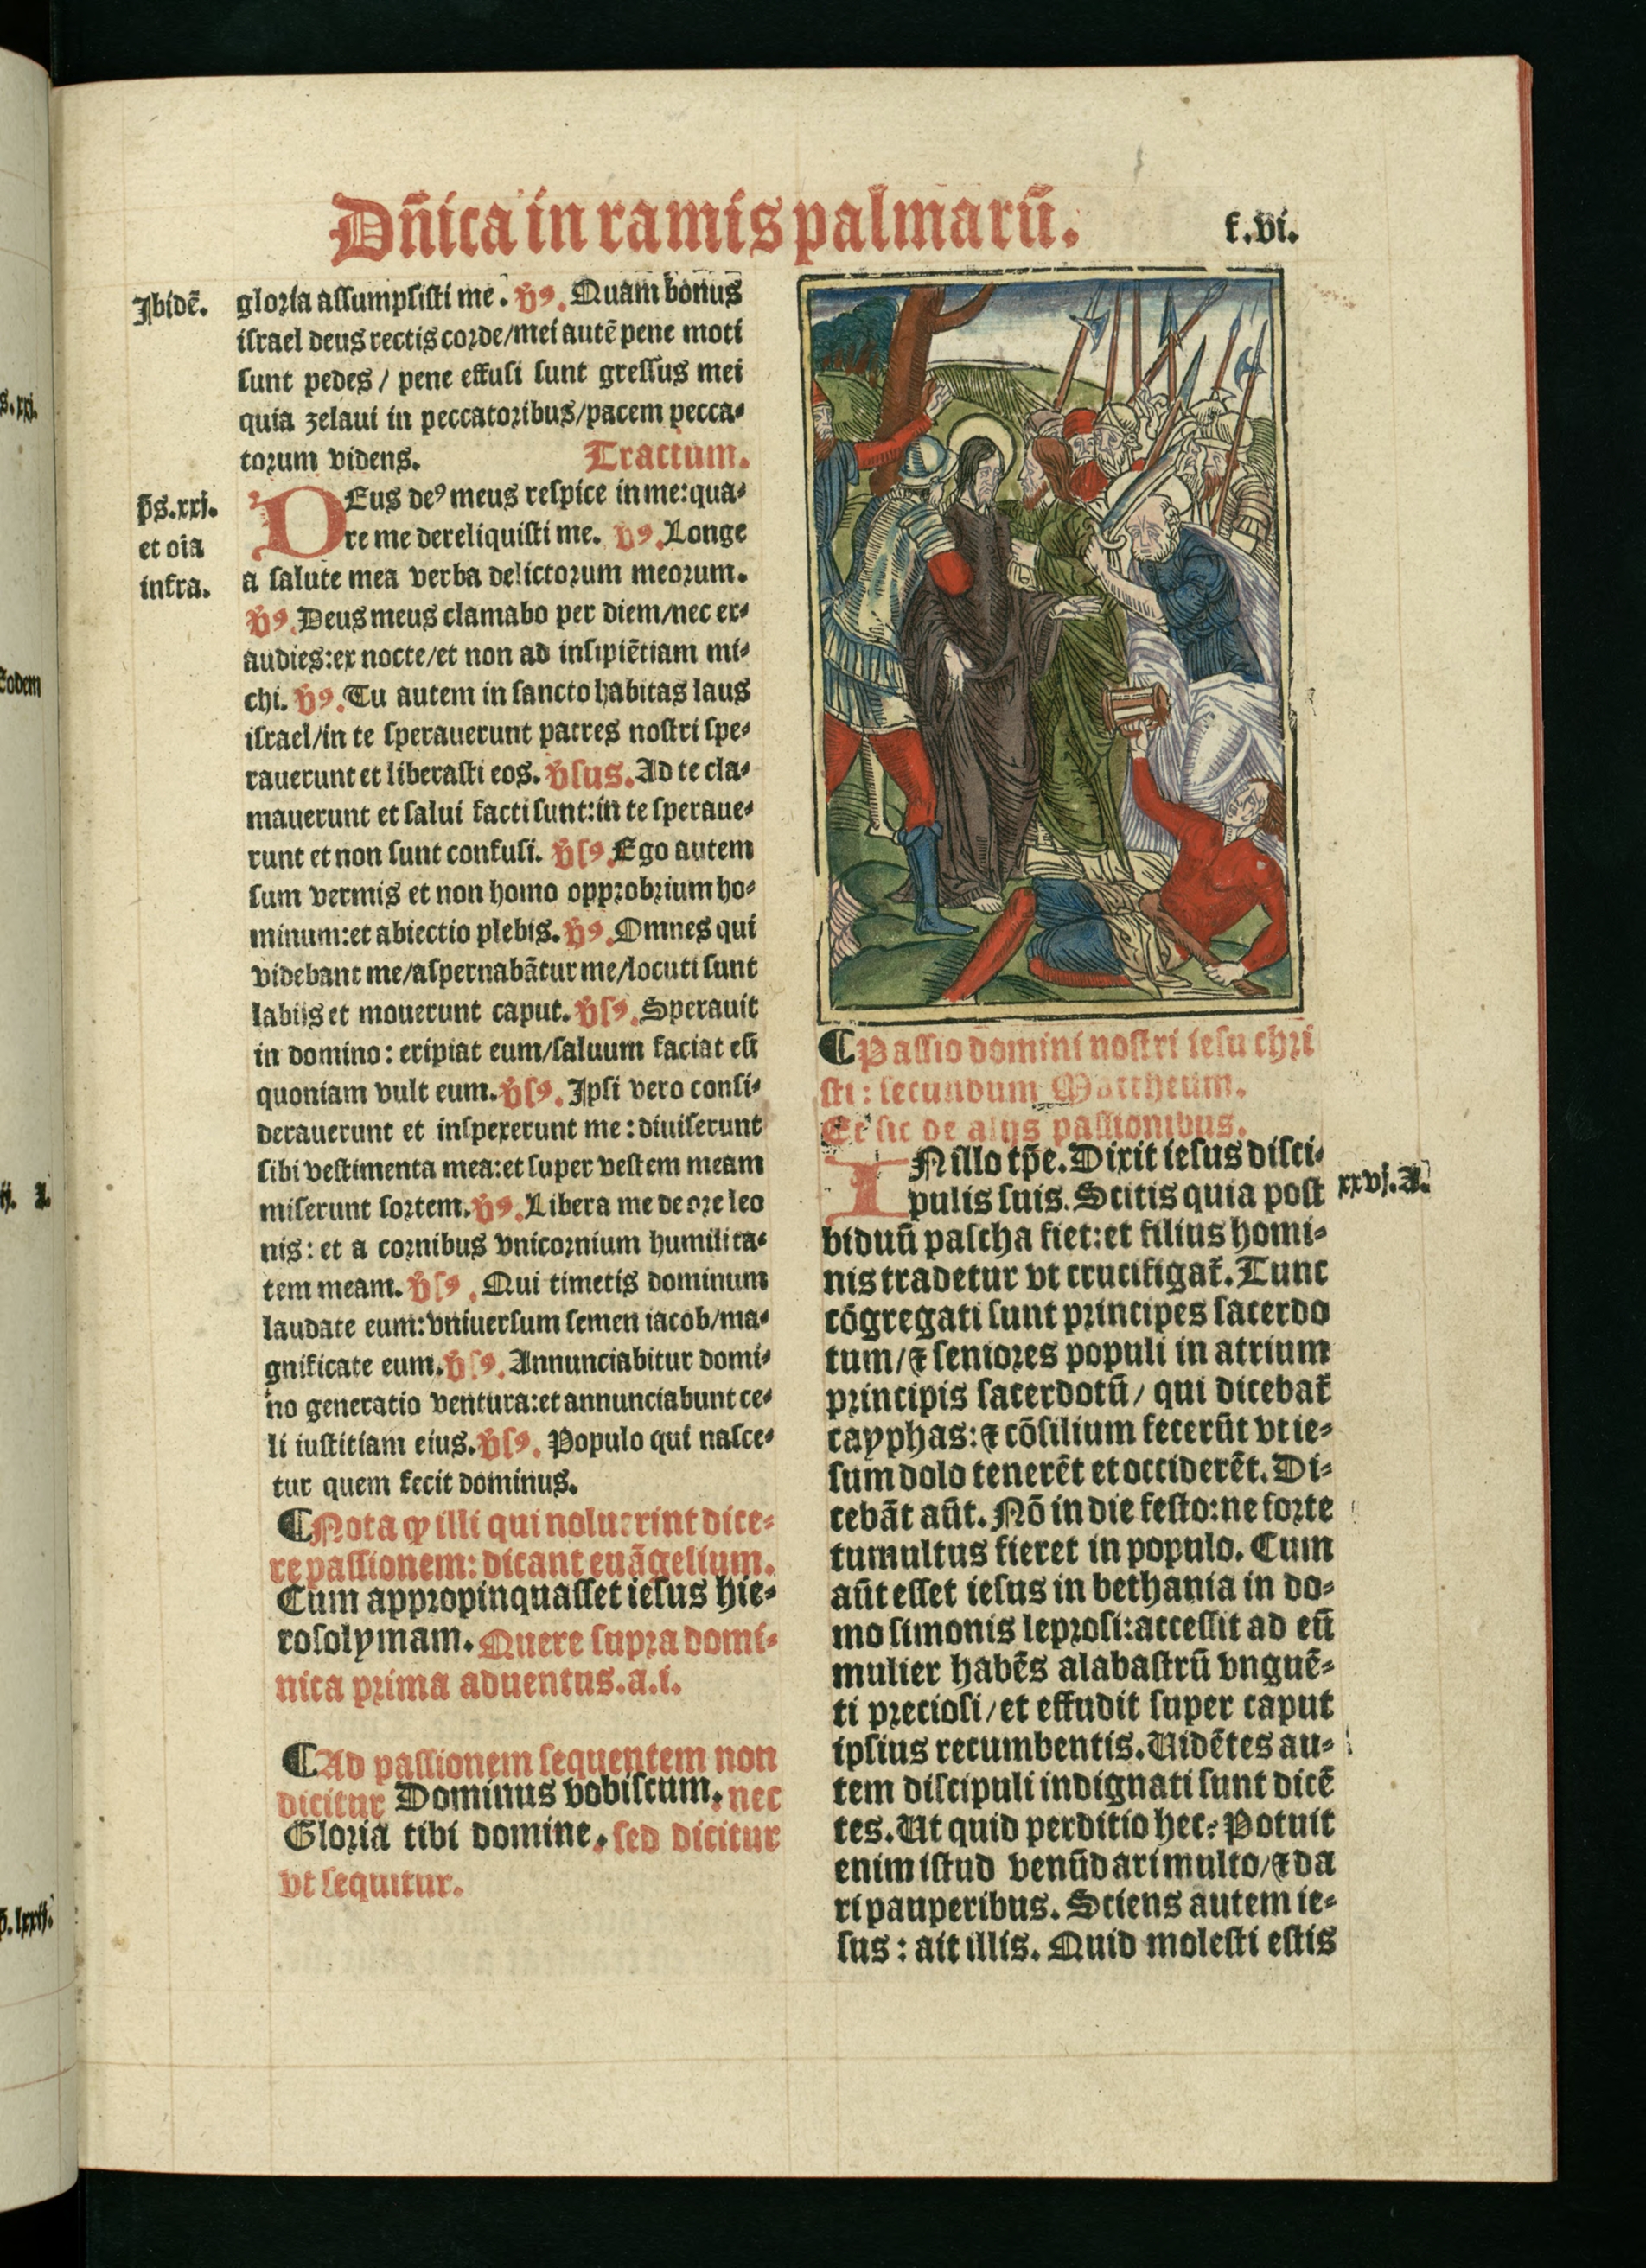 Dñica in ramis palmarũ.
f.vi.
Ibidẽ.
gloria assumpsisti me. ℣ꝯ. Quam bonus
israel deus rectis corde/mei autẽ pene moti
sunt pedes / pene effusi sunt gressus mei
quia zelaui in peccatoribus/pacem pecca-
torum videns. Tractum.
p̃s.xxi.
et oĩa
infra.
DEus deꝰ meus respice in me:qua-
re me dereliquisti me. ℣ꝯ. Longe
a salute mea verba delictorum meorum.
℣ꝯ. Deus meus clamabo per diem/nec ex-
audies:ex nocte/et non ad insipiẽtiam mi-
chi. ℣ꝯ. Tu autem in sancto habitas laus
israel/in te sperauerunt patres nostri spe-
rauerunt et liberasti eos. ℣sus. Ad te cla-
mauerunt et salui facti sunt:in te speraue-
runt et non sunt confusi. ℣sꝯ. Ego autem
sum vermis et non homo opprobrium ho-
minum:et abiectio plebis. ℣ꝯ. Omnes qui
videbant me/aspernabãtur me/locuti sunt
labijs et mouerunt caput. ℣sꝯ. Sperauit
in domino: eripiat eum/saluum faciat eũ
quoniam vult eum. ℣sꝯ. Ipsi vero consi-
derauerunt et inspexerunt me: diuiserunt
sibi vestimenta mea:et super vestem meam
miserunt sortem. ℣ꝯ. Libera me de ore leo
nis: et a cornibus vnicornium humilita-
tem meam. ℣sꝯ. Qui timetis dominum
laudate eum:vniuersum semen iacob/ma-
gnificate eum. ℣sꝯ. Annunciabitur domi-
no generatio ventura:et annunciabunt ce-
li iustitiam eius. ℣sꝯ. Populo qui nasce-
tur quem fecit dominus.
¶Nota ꝙ illi qui noluerint dice-
re passionem: dicant euãgelium.
Cum appropinquasset iesus hie-
rosolymam. Quere supra domi-
nica prima aduentus.a.i.
¶Ad passionem sequentem non
dicitur Dominus vobiscum. nec
Gloria tibi domine. sed dicitur
vt sequitur.
¶Passio domini nostri iesu chri
sti: secundum Mattheum.
Et sic de alijs passionibus.
IN illo tp̃e. Dixit iesus disci-
pulis suis. Scitis quia post
xxvj.A.
biduũ pascha fiet:et filius homi-
nis tradetur vt crucifigat̃. Tunc
cõgregati sunt principes sacerdo
tum/⁊ seniores populi in atrium
principis sacerdotũ/ qui dicebat̃
cayphas:⁊ cõsilium fecerũt vt ie-
sum dolo tenerẽt et occiderẽt. Di-
cebãt aũt. Nõ in die festo:ne forte
tumultus fieret in populo. Cum
aũt esset iesus in bethania in do-
mo simonis leprosi:accessit ad eũ
mulier habẽs alabastrũ vnguẽ-
ti preciosi/et effudit super caput
ipsius recumbentis. Uidẽtes au-
tem discipuli indignati sunt dicẽ
tes. Ut quid perditio hec? Potuit
enim istud venũdari multo/⁊ da
ri pauperibus. Sciens autem ie-
sus: ait illis. Quid molesti estis
s.xxj.
Eodem
ij. A.
p̃. lxxij.